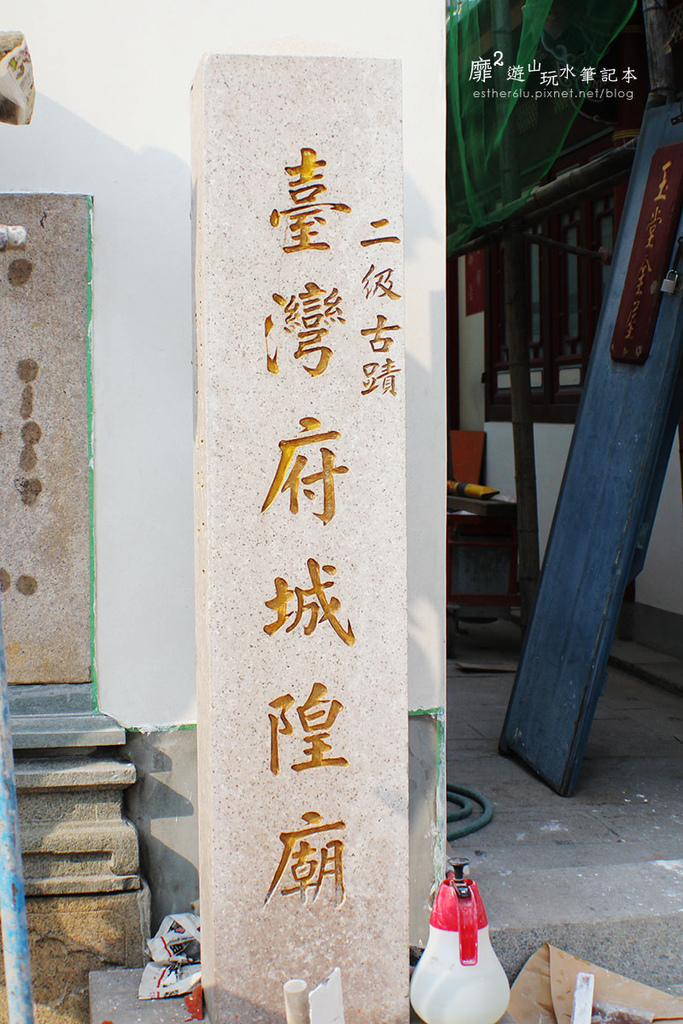 靡²遊山玩水筆記本
esther6lu.pixnet.net/blog
二級古蹟
臺灣府城隍廟
玉堂金屋